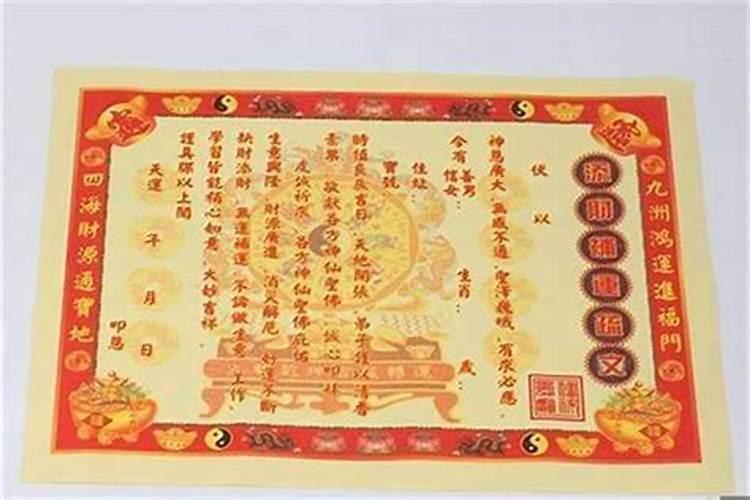 九洲鴻運進福門
添財補運疏文
伏以
神恩廣大 無感不通 聖澤巍峨 有求必應
今有 善男 信女： 生肖： 歲：
住址：
寶號
時值良辰吉日 天地開張 弟子謹以清香
素果 敬獻各方神仙聖佛 誠心叩拜
虔誠祈求 各方神仙聖佛庇佑
生意興隆 財源廣進 消災解厄 好運不斷
缺財添財 無運補運 不論做生意、工作、
學習皆能稱心如意 大妙吉祥
謹具牒以上聞
天運 年 月 日 叩恩
四海財源通寶地